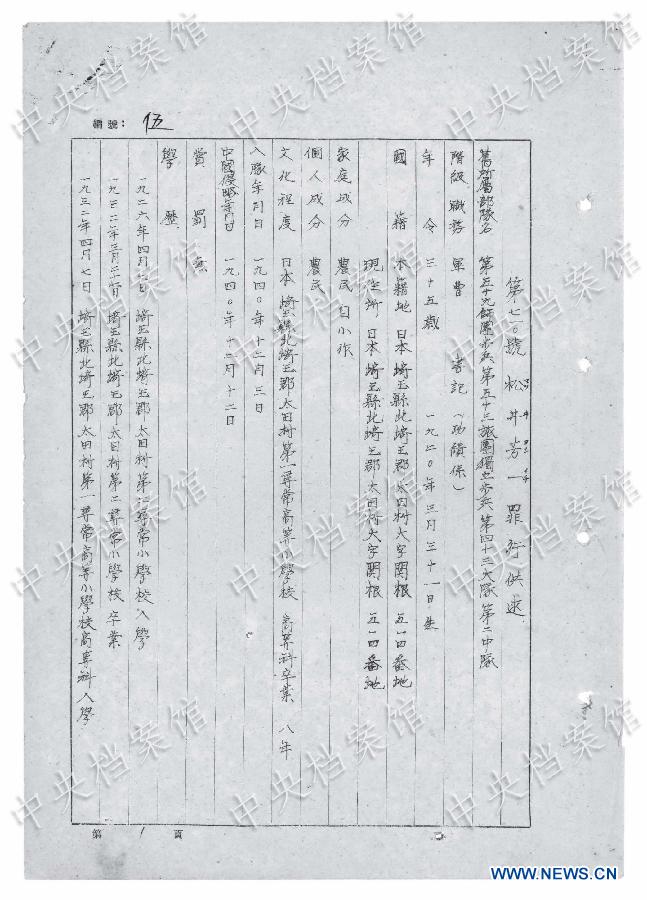 編號: 伍
第七一〇號 松井芳一 罪行供述
舊所屬部隊名 第五十九師團步兵第五十三旅團獨立步兵第四十三大隊第二中隊
階級職務 軍曹 書記(功績係)
年令 三十五歲 一九二〇年三月三十一日生
國籍 本籍地 日本埼玉縣北埼玉郡太田村大字関根 五一四番地
現住所, 日本埼玉縣北埼玉郡太田村大字関根 五一四番地
家庭成分 農民 自小作
個人成分 農民
文化程度 日本埼玉縣北埼玉郡太田村第一尋常高等小學校 高等科卒業 八年
入隊年月日 一九四〇年十二月三日
中國侵略年月日 一九四〇年十二月十二日
賞罰 無
學歷
一九二六年四月 日 埼玉縣北埼玉郡太田村第二尋常小學校入學
一九三二年三月二十 日 埼玉縣北埼玉郡太田村第二尋常小學校卒業
一九三二年四月七日 埼玉縣北埼玉郡太田村第一尋常高等小學校高等科入學
第 1 頁
中央档案馆
WWW.NEWS.CN